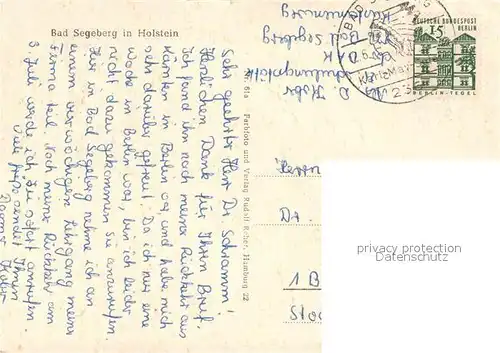 Bad Segeberg in Holstein
Sehr geehrter Herr Dr. Schramm!
Herzlichen Dank für Ihren Brief.
Ich fand ihn nach meiner Rückkehr aus
Kärnten in Berlin vor, und habe mich
sehr darüber gefreut. Da ich nur eine
Woche in Berlin war, bin ich leider
nicht dazu gekommen Sie anzurufen.
Hier in Bad Segeberg nehme ich an
einem vierwöchigen Lehrgang meiner
Firma teil. Nach meiner Rückkehr am
3. Juli werde ich Sie sofort anrufen.
Viele Grüße sendet Ihnen
Dagmar
61a Farbfoto und Verlag Rudolf Reher, Hamburg 22
D.
DAK
Bad Segeberg
Kurhausweg
BAD
KARL MAY
DEUTSCHE BUNDESPOST
BERLIN
15
BERLIN-TEGEL
Herrn
Dr.
1 B
privacy protection
anversandt